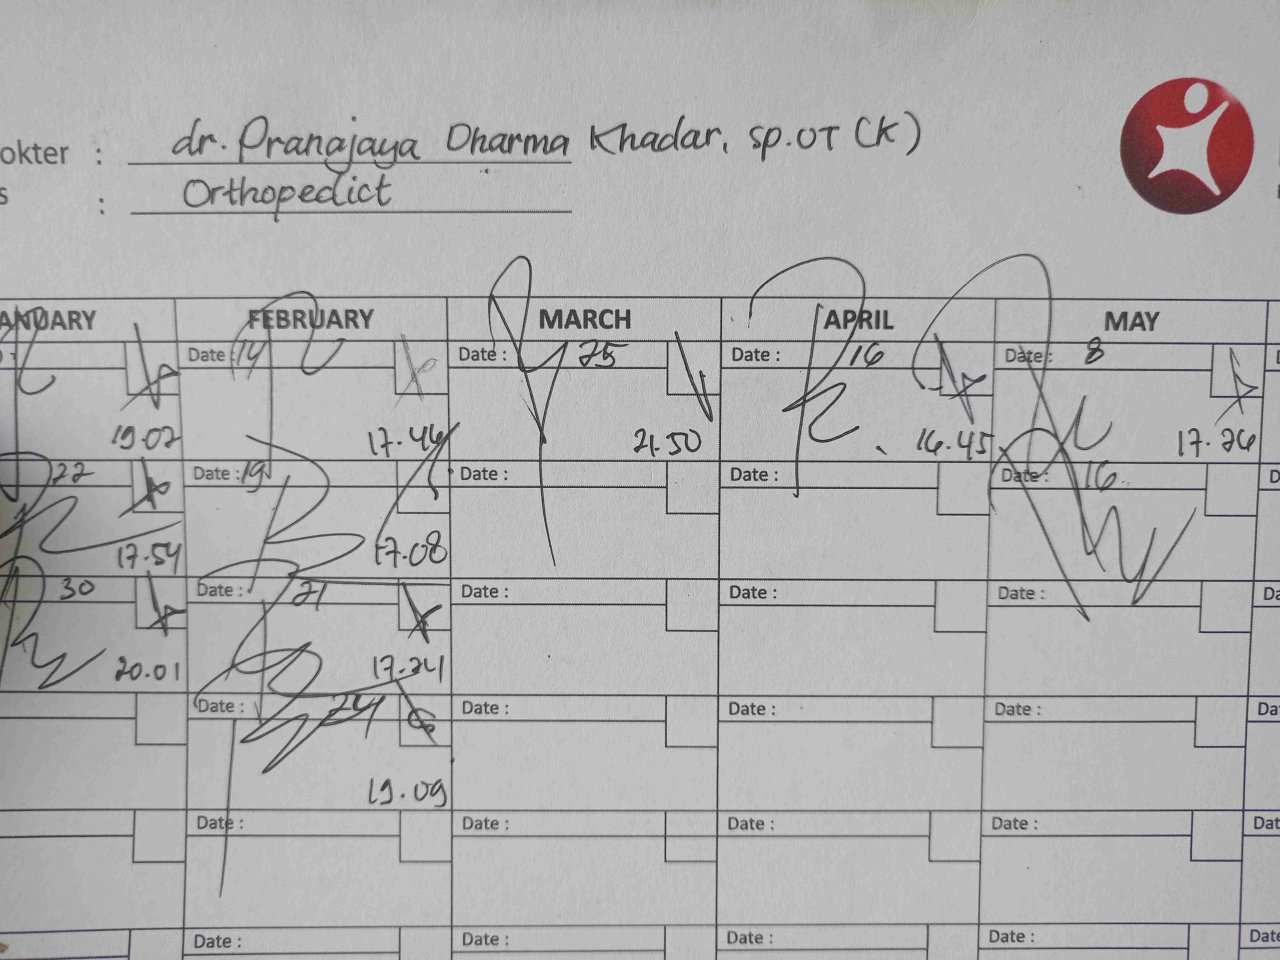 okter : dr. Pranajaya Dharma Khadar, sp.OT (K)
s : Orthopedict
ANUARY FEBRUARY MARCH APRIL MAY
Date : 14 Date : 25 Date : 16 Date : 8
19.02 17.46 21.50 16.45 17.26
22 Date : 19 Date : Date : Date : 16
17.54 17.08
30 Date : 21 Date : Date : Date : Da
20.01 17.24
Date : 24 Date : Date : Date : Da
19.09
Date : Date : Date : Date : Dat
Date : Date : Date : Date : Date